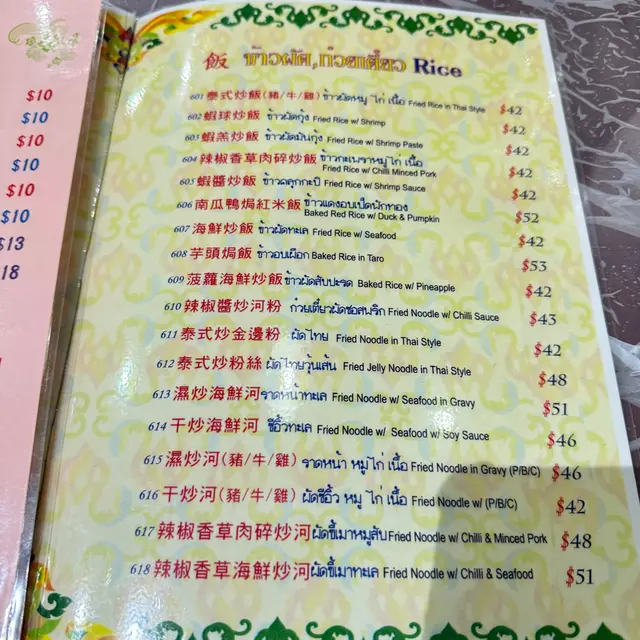 $10
$10
$10
$10
$10
$10
$13
飯 ข้าวผัด,ก๋วยเตี๋ยว Rice
601 泰式炒飯(豬/牛/雞) ข้าวผัดหมู ไก่ เนื้อ Fried Rice in Thai Style $42
602 蝦球炒飯 ข้าวผัดกุ้ง Fried Rice w/ Shrimp $42
603 蝦羔炒飯 ข้าวผัดมันกุ้ง Fried Rice w/ Shrimp Paste $42
604 辣椒香草肉碎炒飯 ข้าวกะเพราหมู ไก่ เนื้อ Fried Rice w/ Chilli Minced Pork $42
605 蝦醬炒飯 ข้าวคลุกกะปิ Fried Rice w/ Shrimp Sauce $42
606 南瓜鴨焗紅米飯 ข้าวแดงอบเป็ดฟักทอง Baked Red Rice w/ Duck & Pumpkin $52
607 海鮮炒飯 ข้าวผัดทะเล Fried Rice w/ Seafood $42
608 芋頭焗飯 ข้าวอบเผือก Baked Rice in Taro $53
609 菠蘿海鮮炒飯 ข้าวผัดสับปะรด Baked Rice w/ Pineapple $42
610 辣椒醬炒河粉 ก๋วยเตี๋ยวผัดซอสพริก Fried Noodle w/ Chilli Sauce $43
611 泰式炒金邊粉 ผัดไทย Fried Noodle in Thai Style $42
612 泰式炒粉絲 ผัดไทยวุ้นเส้น Fried Jelly Noodle in Thai Style $48
613 濕炒海鮮河 ราดหน้าทะเล Fried Noodle w/ Seafood in Gravy $51
614 干炒海鮮河 ซีอิ๊วทะเล Fried Noodle w/ Seafood w/ Soy Sauce $46
615 濕炒河(豬/牛/雞) ราดหน้า หมู ไก่ เนื้อ Fried Noodle in Gravy (P/B/C) $46
616 干炒河(豬/牛/雞) ผัดซีอิ๊ว หมู ไก่ เนื้อ Fried Noodle w/ (P/B/C) $42
617 辣椒香草肉碎炒河 ผัดขี้เมาหมูสับ Fried Noodle w/ Chilli & Minced Pork $48
618 辣椒香草海鮮炒河 ผัดขี้เมาทะเล Fried Noodle w/ Chilli & Seafood $51